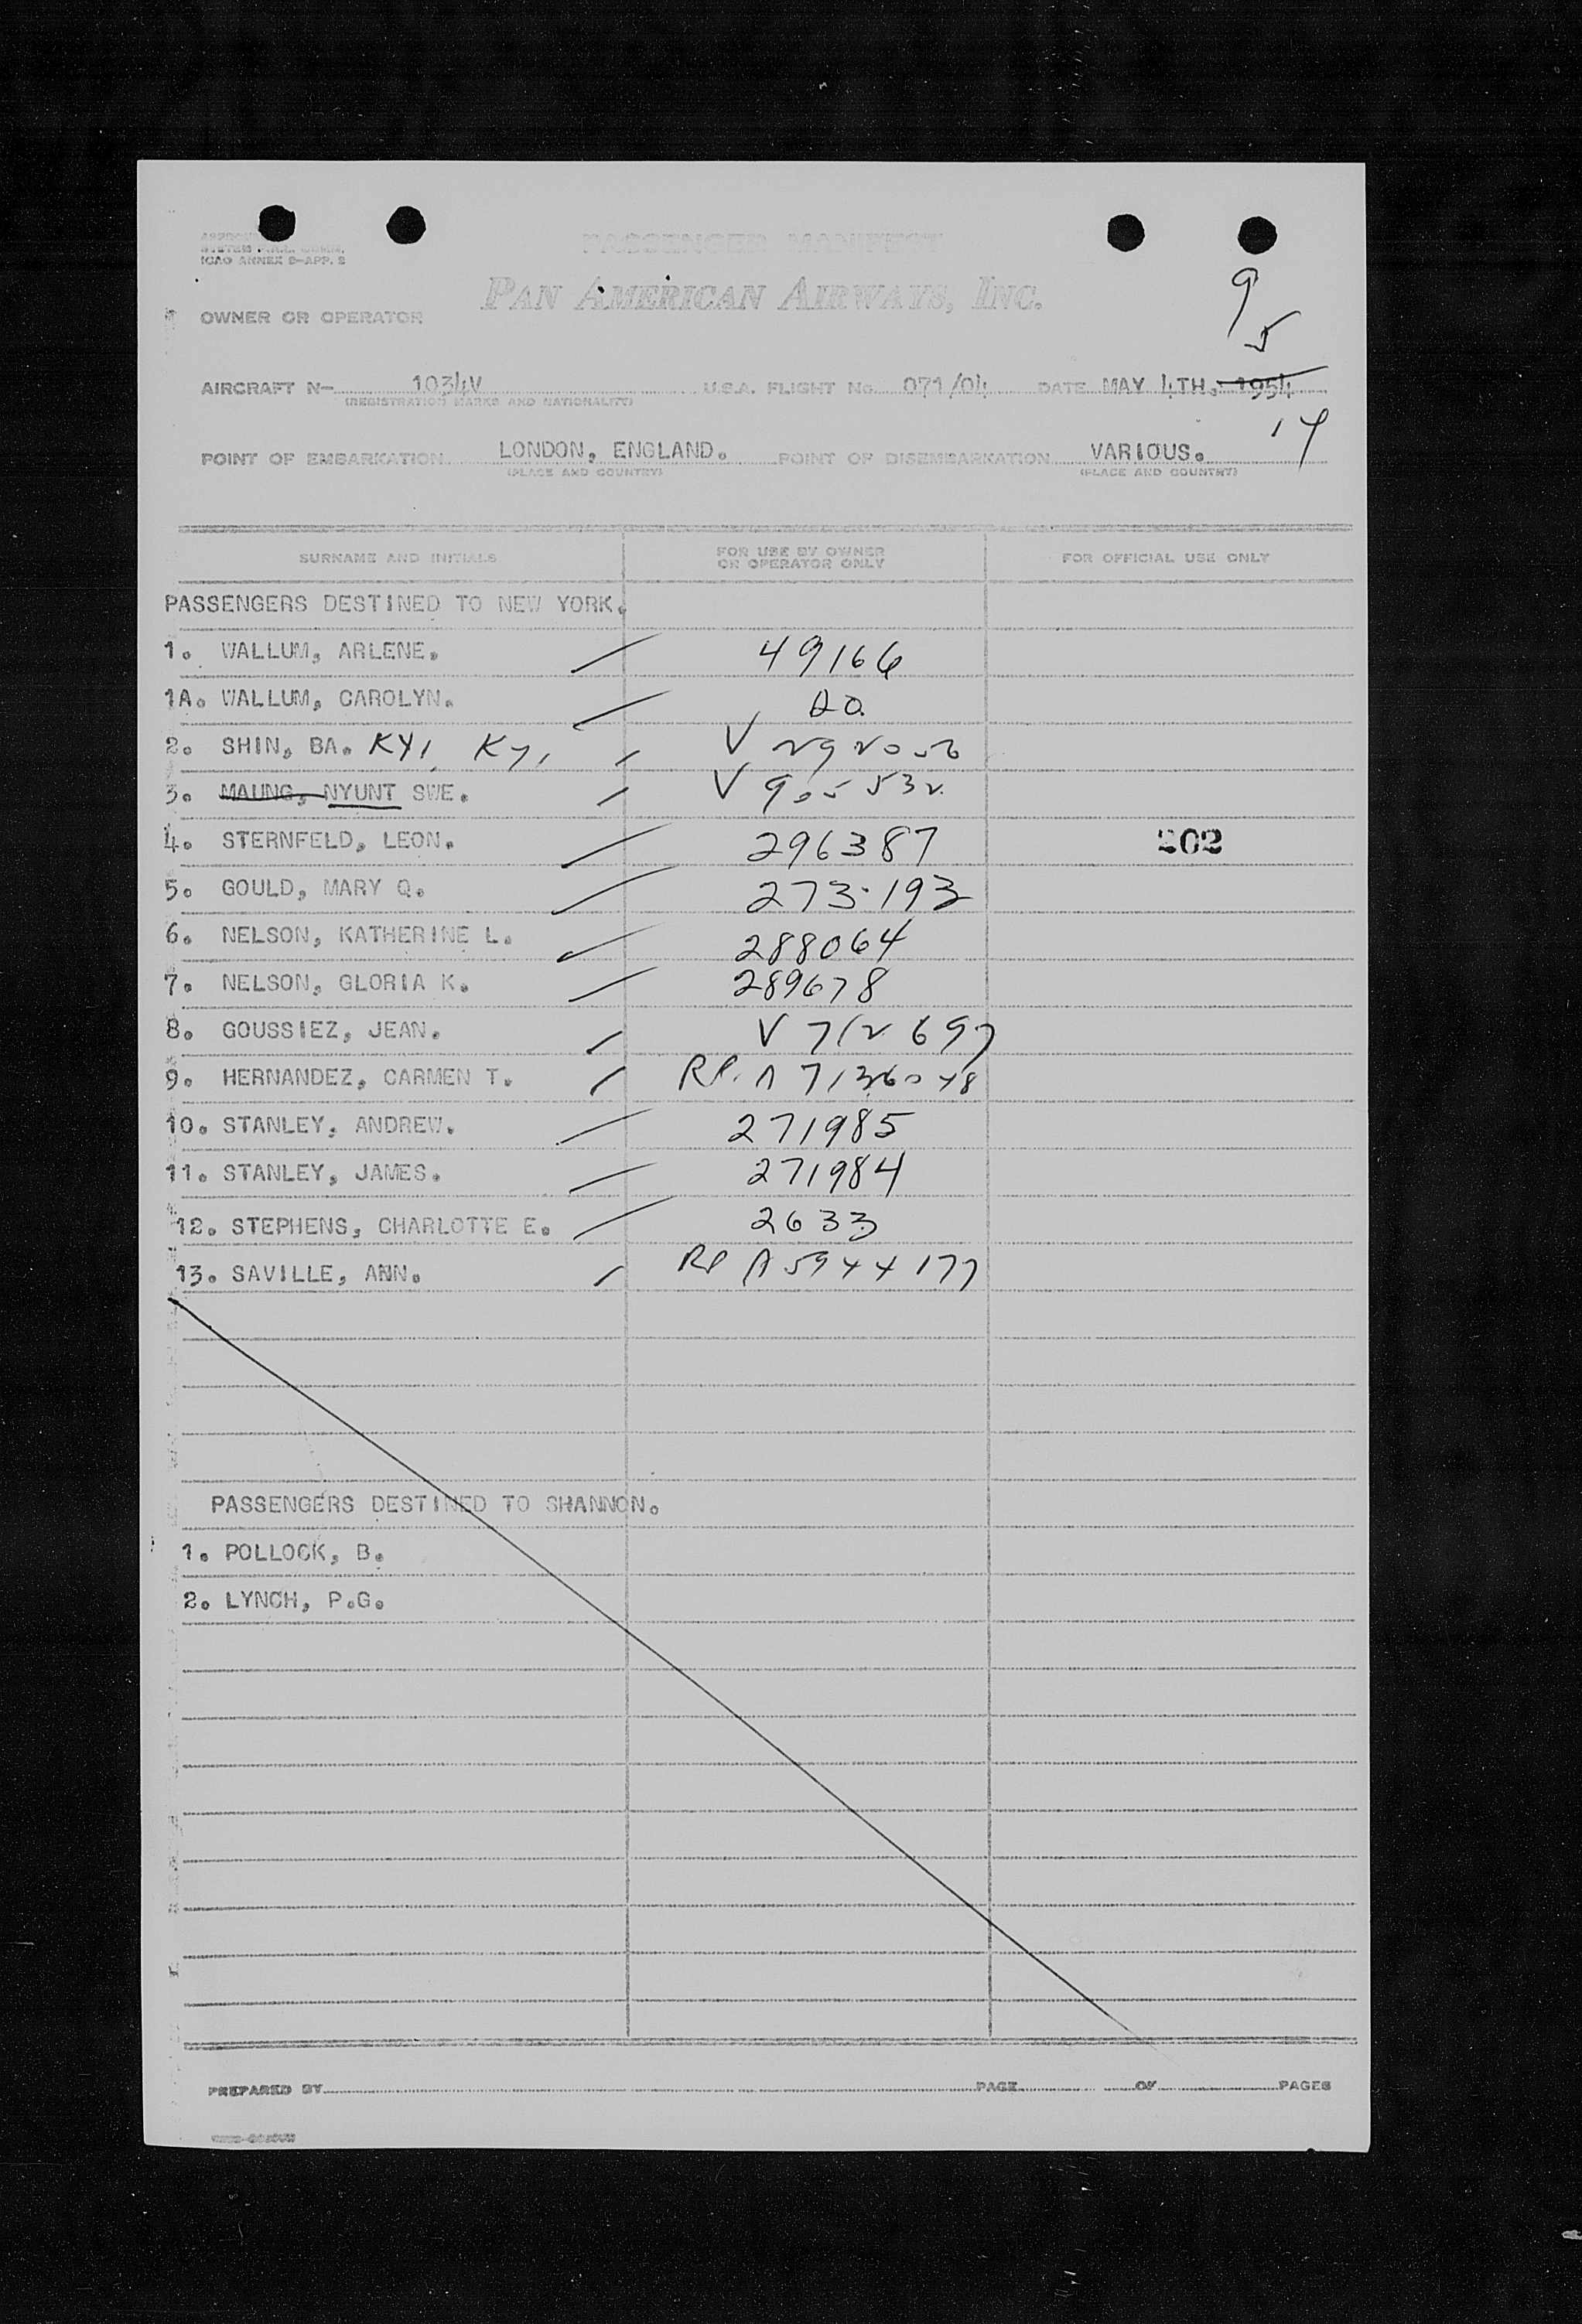 ICAO ANNEX 9-APP. 2
PASSENGER MANIFEST
PAN AMERICAN AIRWAYS, INC.
OWNER OR OPERATOR
9
5
AIRCRAFT N- 1034V U.S.A. FLIGHT No. 071/04 DATE MAY 4TH, 1954
(REGISTRATION MARKS AND NATIONALITY)
14
POINT OF EMBARKATION LONDON, ENGLAND. POINT OF DISEMBARKATION VARIOUS.
(PLACE AND COUNTRY) (PLACE AND COUNTRY)
SURNAME AND INITIALS FOR USE BY OWNER OR OPERATOR ONLY FOR OFFICIAL USE ONLY
PASSENGERS DESTINED TO NEW YORK.
1. WALLUM, ARLENE. 49166
1A. WALLUM, CAROLYN. DO.
2. SHIN, BA. KYI KYI V
3. MAUNG, NYUNT SWE. V 905532
4. STERNFELD, LEON. 296387 202
5. GOULD, MARY Q. 273193
6. NELSON, KATHERINE L. 288064
7. NELSON, GLORIA K. 289678
8. GOUSSIEZ, JEAN. V 712697
9. HERNANDEZ, CARMEN T. RP. A 7136048
10. STANLEY, ANDREW. 271985
11. STANLEY, JAMES. 271984
12. STEPHENS, CHARLOTTE E. 2633
13. SAVILLE, ANN. RP A 5944177
PASSENGERS DESTINED TO SHANNON.
1. POLLOCK, B.
2. LYNCH, P.G.
PREPARED BY PAGE OF PAGES